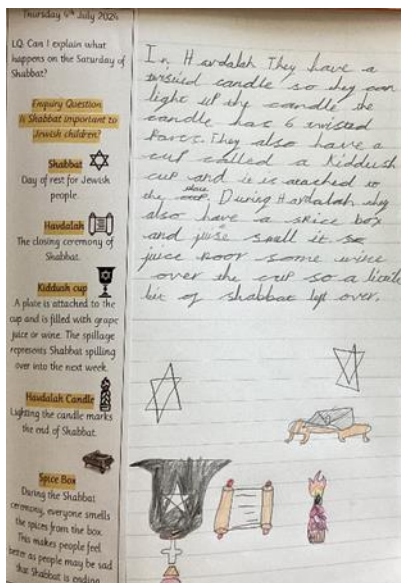 Thursday 4th July 2024
LQ: Can I explain what
happens on the Saturday of
Shabbat?
Enquiry Question
Is Shabbat important to
Jewish children?
Shabbat
Day of rest for Jewish
people.
Havdalah
The closing ceremony of
Shabbat.
Kiddush cup
A plate is attached to the
cup and is filled with grape
juice or wine. The spillage
represents Shabbat spilling
over into the next week.
Havdalah Candle
Lighting the candle marks
the end of Shabbat.
Spice Box
During the Shabbat
ceremony, everyone smells
the spices from the box.
This makes people feel
better as people may be sad
that Shabbat is ending.
In Havdalah They have a
twisted candle so they can
light up the candle the
candle has 6 twisted
They also have a
cup called a Kiddush
cup and it is atached to
the place. During Havdalah they
also have a spice box
and smell it so
poor some wine
over the cup so a little
bit of shabbat left over.